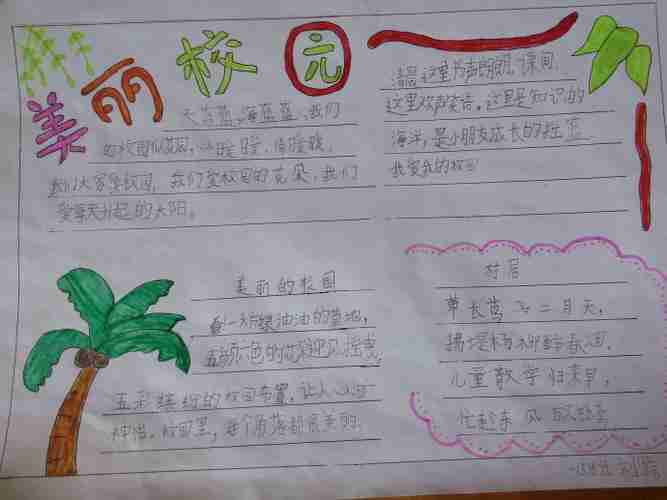 美丽校园
天蓝蓝,海蓝蓝,我们
的校园似花园,心暖暖,情暖暖,
我们大家爱校园,我们爱校园的花朵,我们
爱每天升起的太阳。
清晨这里书声朗朗,课间,
这里欢声笑语。这里是知识的
海洋,是小朋友成长的摇篮
我爱我的校园
美丽的校园
看一片绿油油的草地,
五颜六色的花
五彩缤纷的校园布置,让人心旷
神怡。校园里,每个角落都很美的
村居
草长莺飞二月天,
杨柳醉春烟。
儿童散学归来早,
忙趁东风放纸鸢